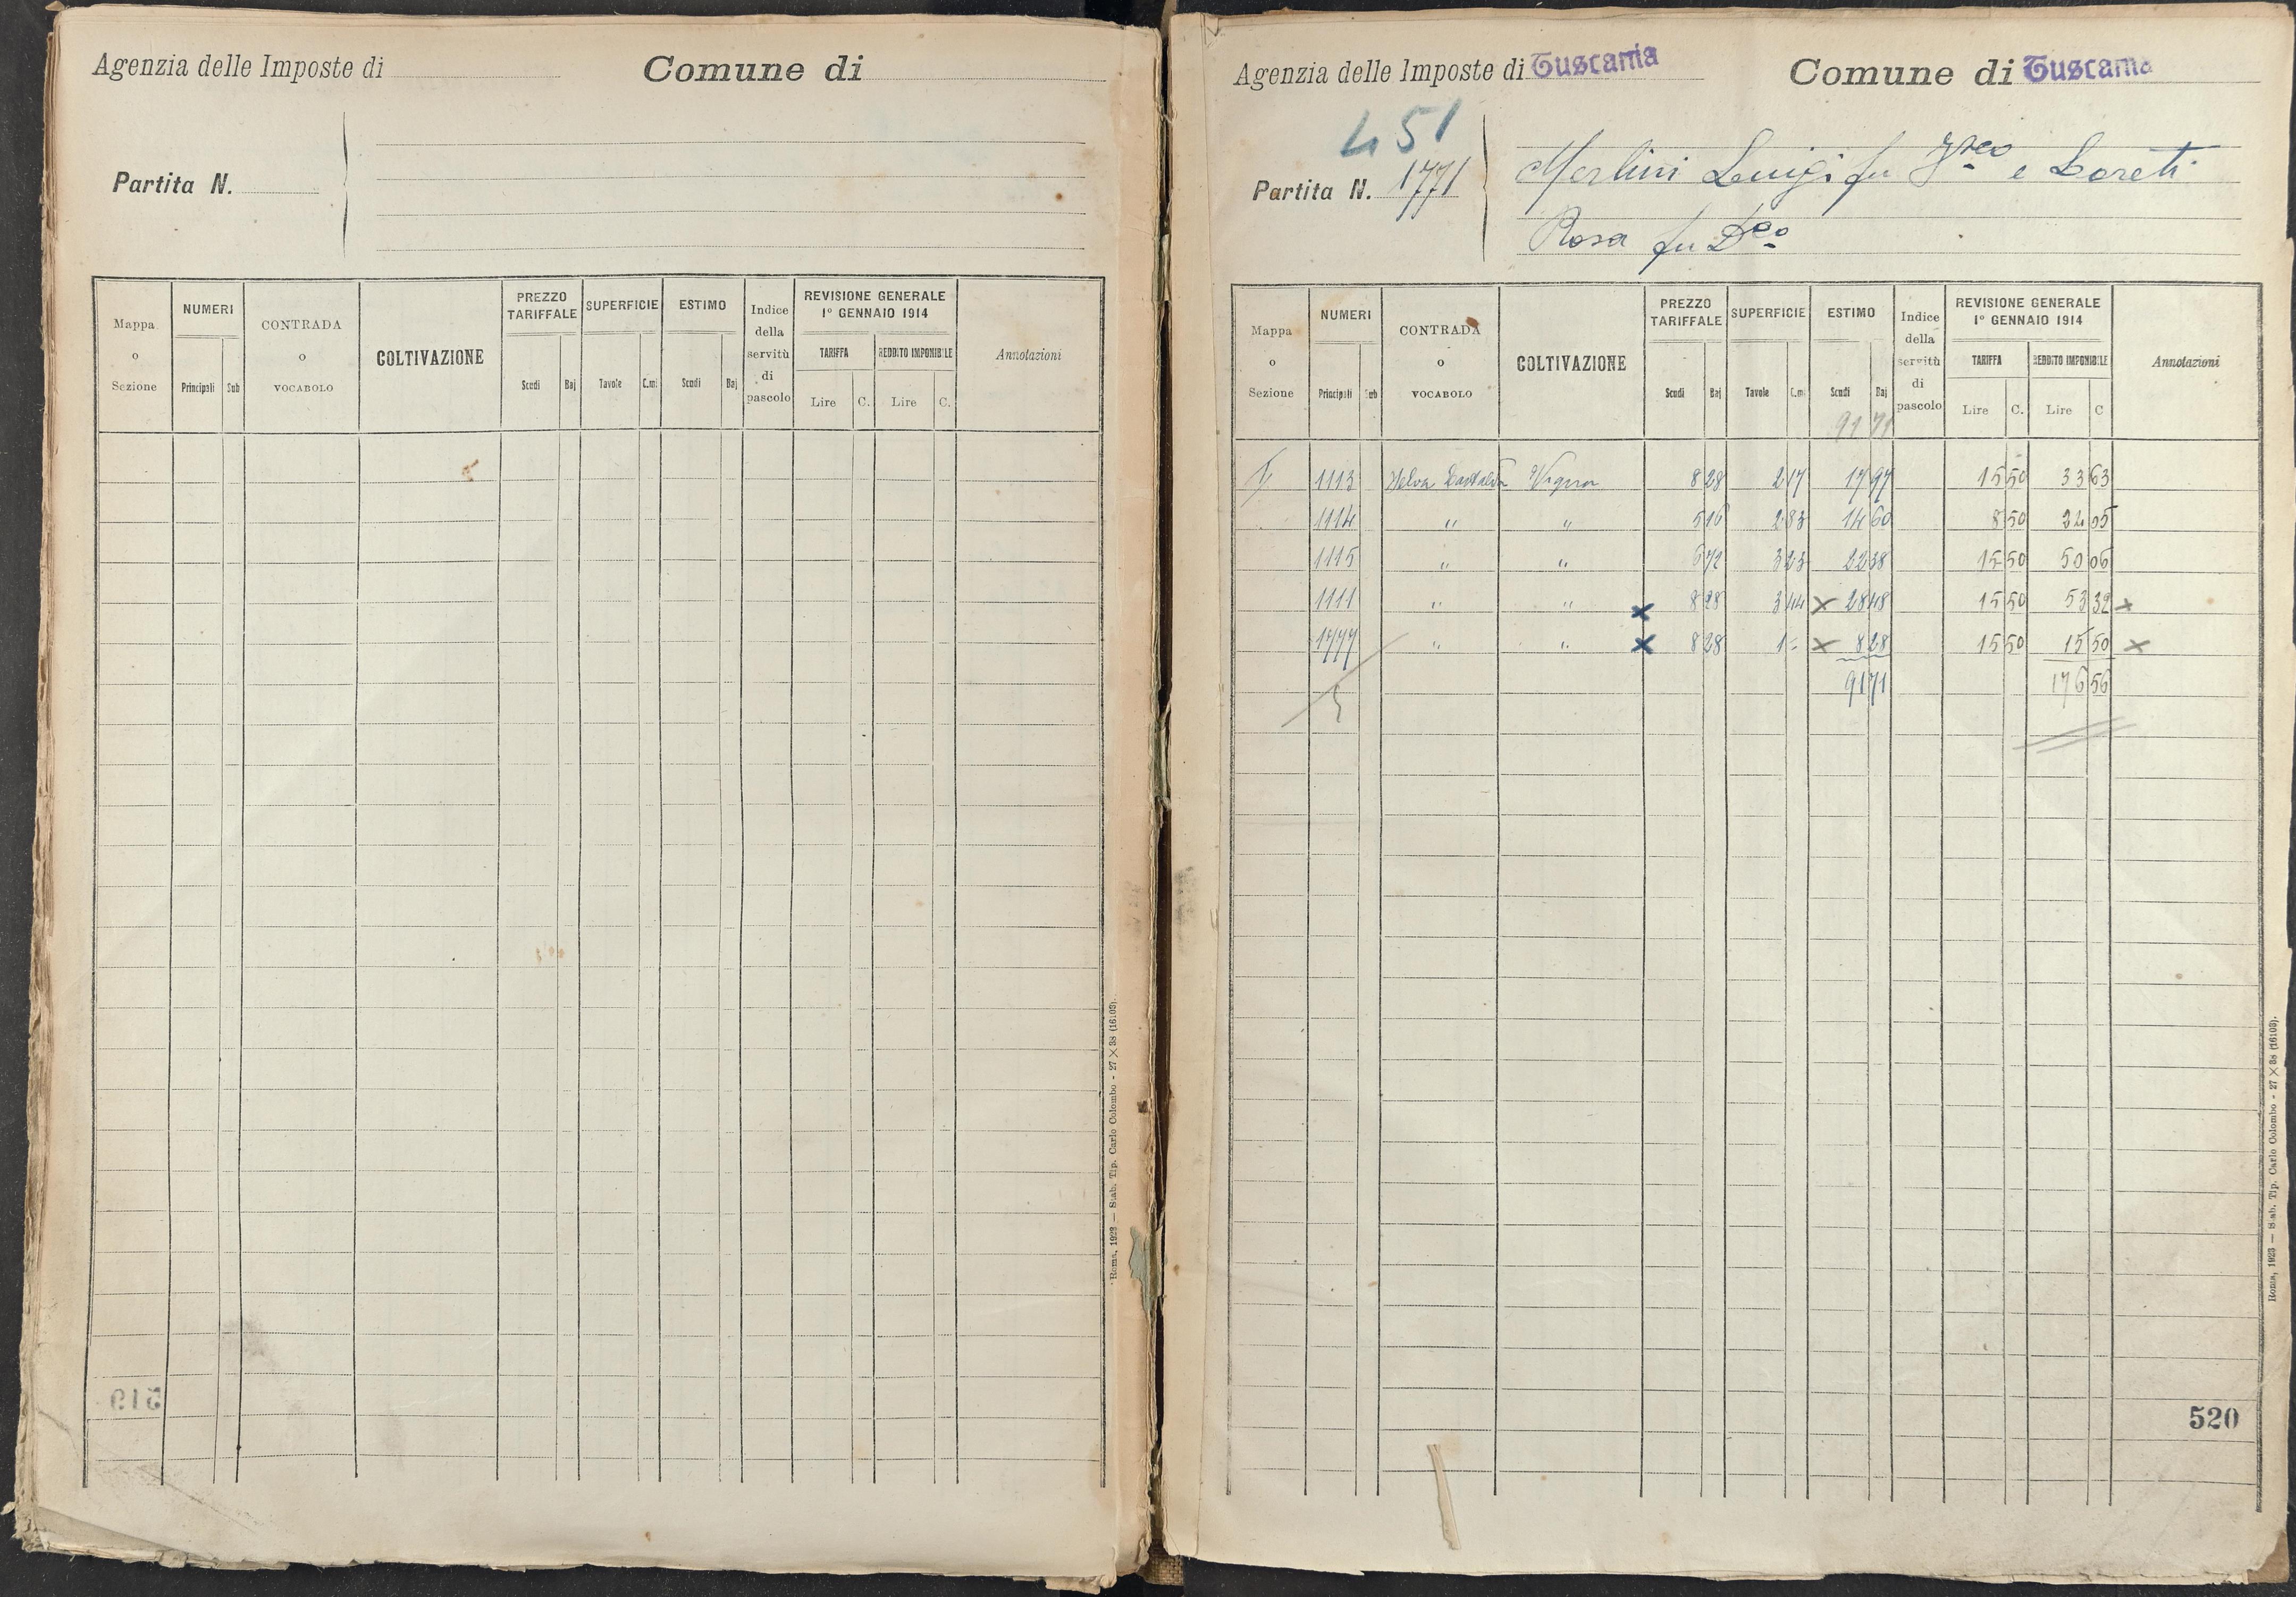 Agenzia delle Imposte di
Comune di
Partita N.
Mappa o Sezione
NUMERI
Principali Sub
CONTRADA o VOCABOLO
COLTIVAZIONE
PREZZO TARIFFALE
Scudi Baj
SUPERFICIE
Tavole C.mi
ESTIMO
Scudi Baj
Indice della servitù di pascolo
REVISIONE GENERALE
1º GENNAIO 1914
TARIFFA REDDITO IMPONIBILE
Lire C. Lire C.
Annotazioni
519
Roma, 1923 — Stab. Tip. Carlo Colombo - 27 X 38 (16103).
Agenzia delle Imposte di Tuscania
Comune di Tuscania
451
Partita N. 1771
Merlini Luigi fu Fsco e Loreti
Rosa fu Dco
Mappa o Sezione
NUMERI
Principali Sub
CONTRADA o VOCABOLO
COLTIVAZIONE
PREZZO TARIFFALE
Scudi Baj
SUPERFICIE
Tavole C.mi
ESTIMO
Scudi Baj
Indice della servitù di pascolo
REVISIONE GENERALE
1º GENNAIO 1914
TARIFFA REDDITO IMPONIBILE
Lire C. Lire C
Annotazioni
91 71
1113 Selva Vigna 8 28 2 17 17 97 15 50 33 63
1114 " " 5 16 2 83 14 60 8 50 24 05
1115 " " 6 72 3 23 22 38 15 50 50 06
1111 " " x 8 28 3 44 x 28 48 15 50 53 32 x
1777 " " x 8 28 1 = x 8 28 15 50 15 50 x
5 91 71 176 56
520
Roma, 1923 — Stab. Tip. Carlo Colombo - 27 X 38 (16103).